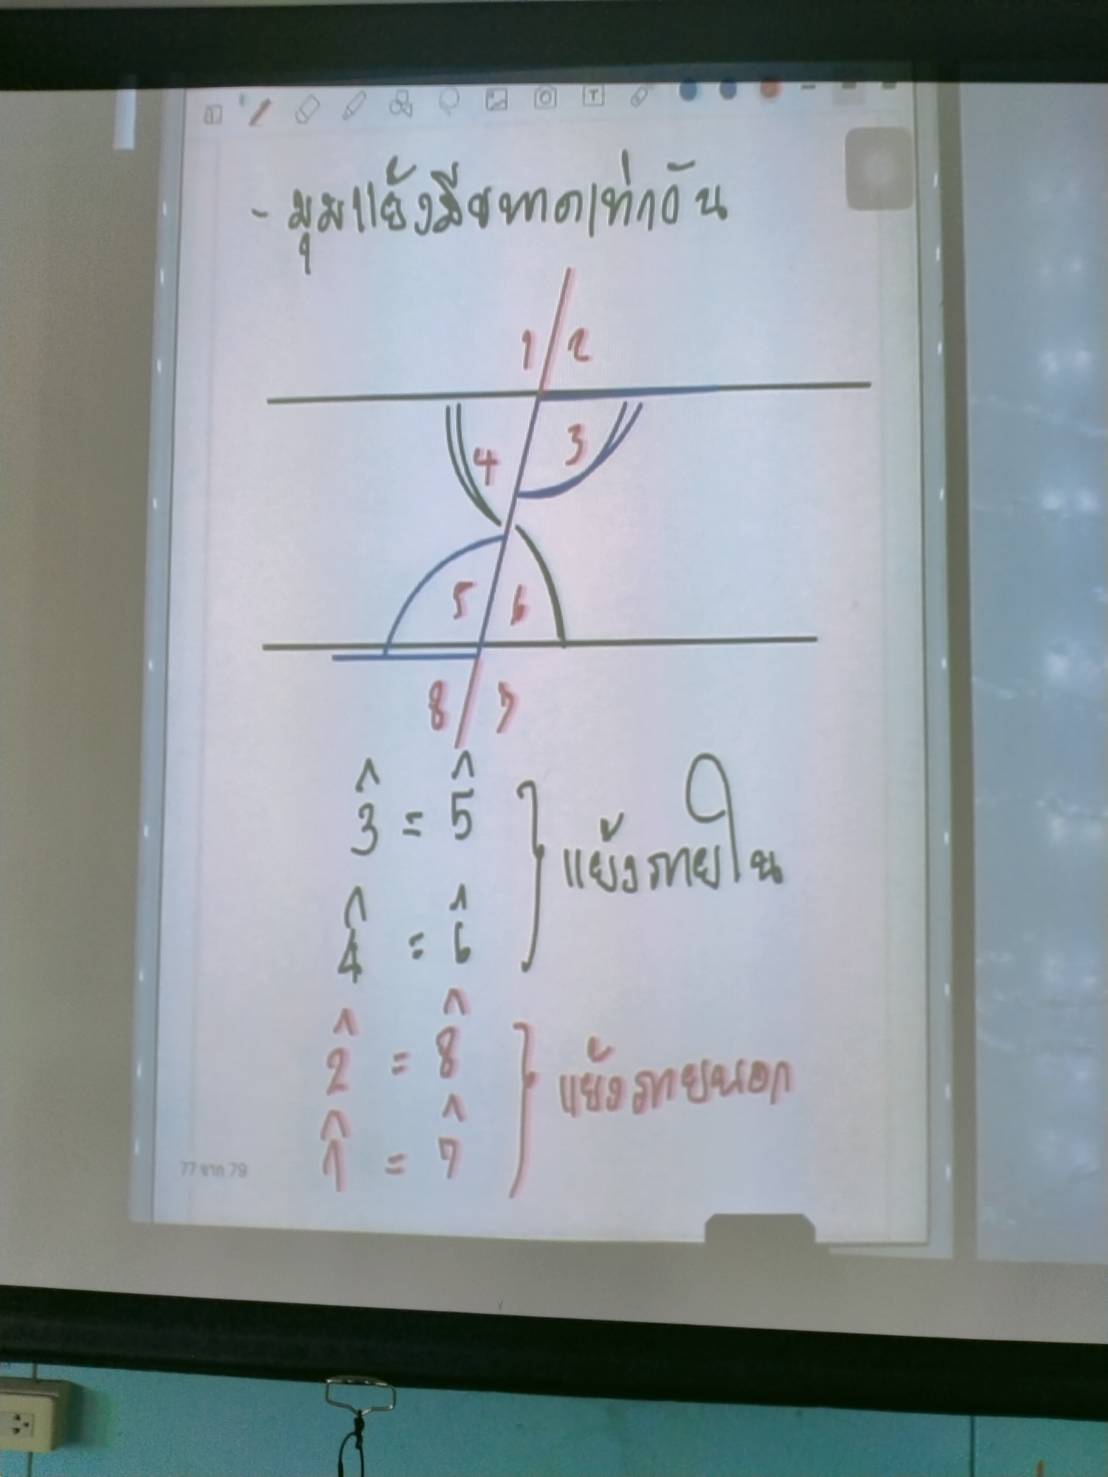 - มุมแย้งมีขนาดเท่ากัน
1 2
4 3
5 6
8 7
3̂ = 5̂
แย้งภายใน
4̂ = 6̂
2̂ = 8̂
แย้งภายนอก
1̂ = 7̂
77 จาก 79